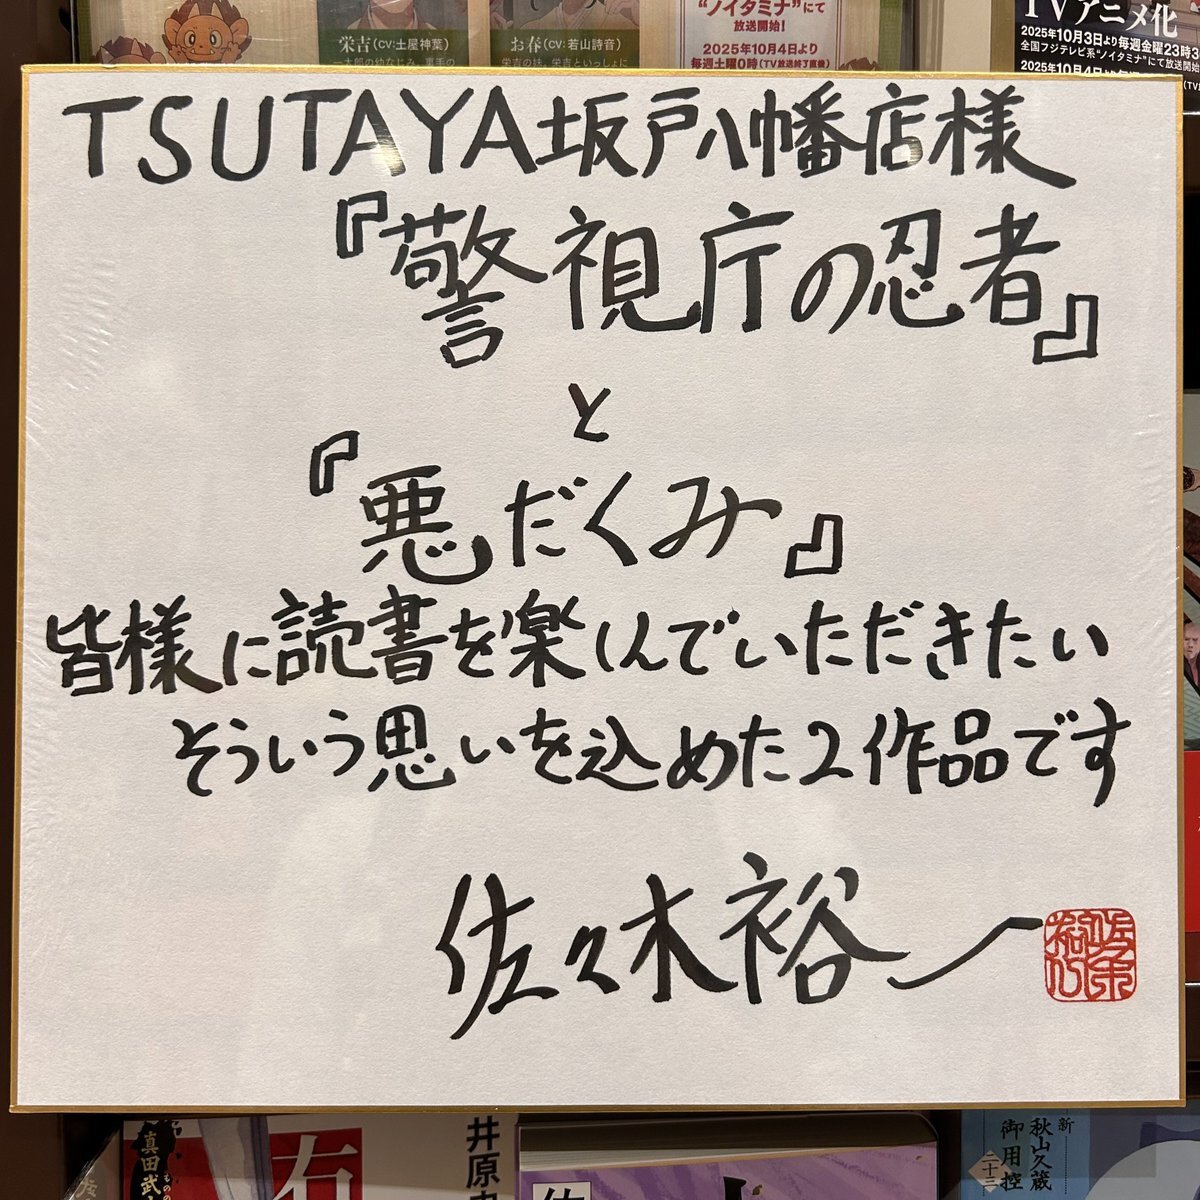 栄吉(CV:土屋神葉)
お春(CV:若山詩音)
"ノイタミナ"にて
放送開始!
2025年10月4日より
毎週土曜0時(TV放送終了直後)
TVアニメ化
2025年10月3日より毎週金曜23時3
全国フジテレビ系"ノイタミナ"にて放送開始
2025年10月4日
TSUTAYA坂戸八幡店様
『警視庁の忍者』
と
『悪だくみ』
皆様に読書を楽しんでいただきたい
そういう思いを込めた2作品です
佐々木裕一
真田武
右
井原
新
秋山久蔵
御用控
二十三